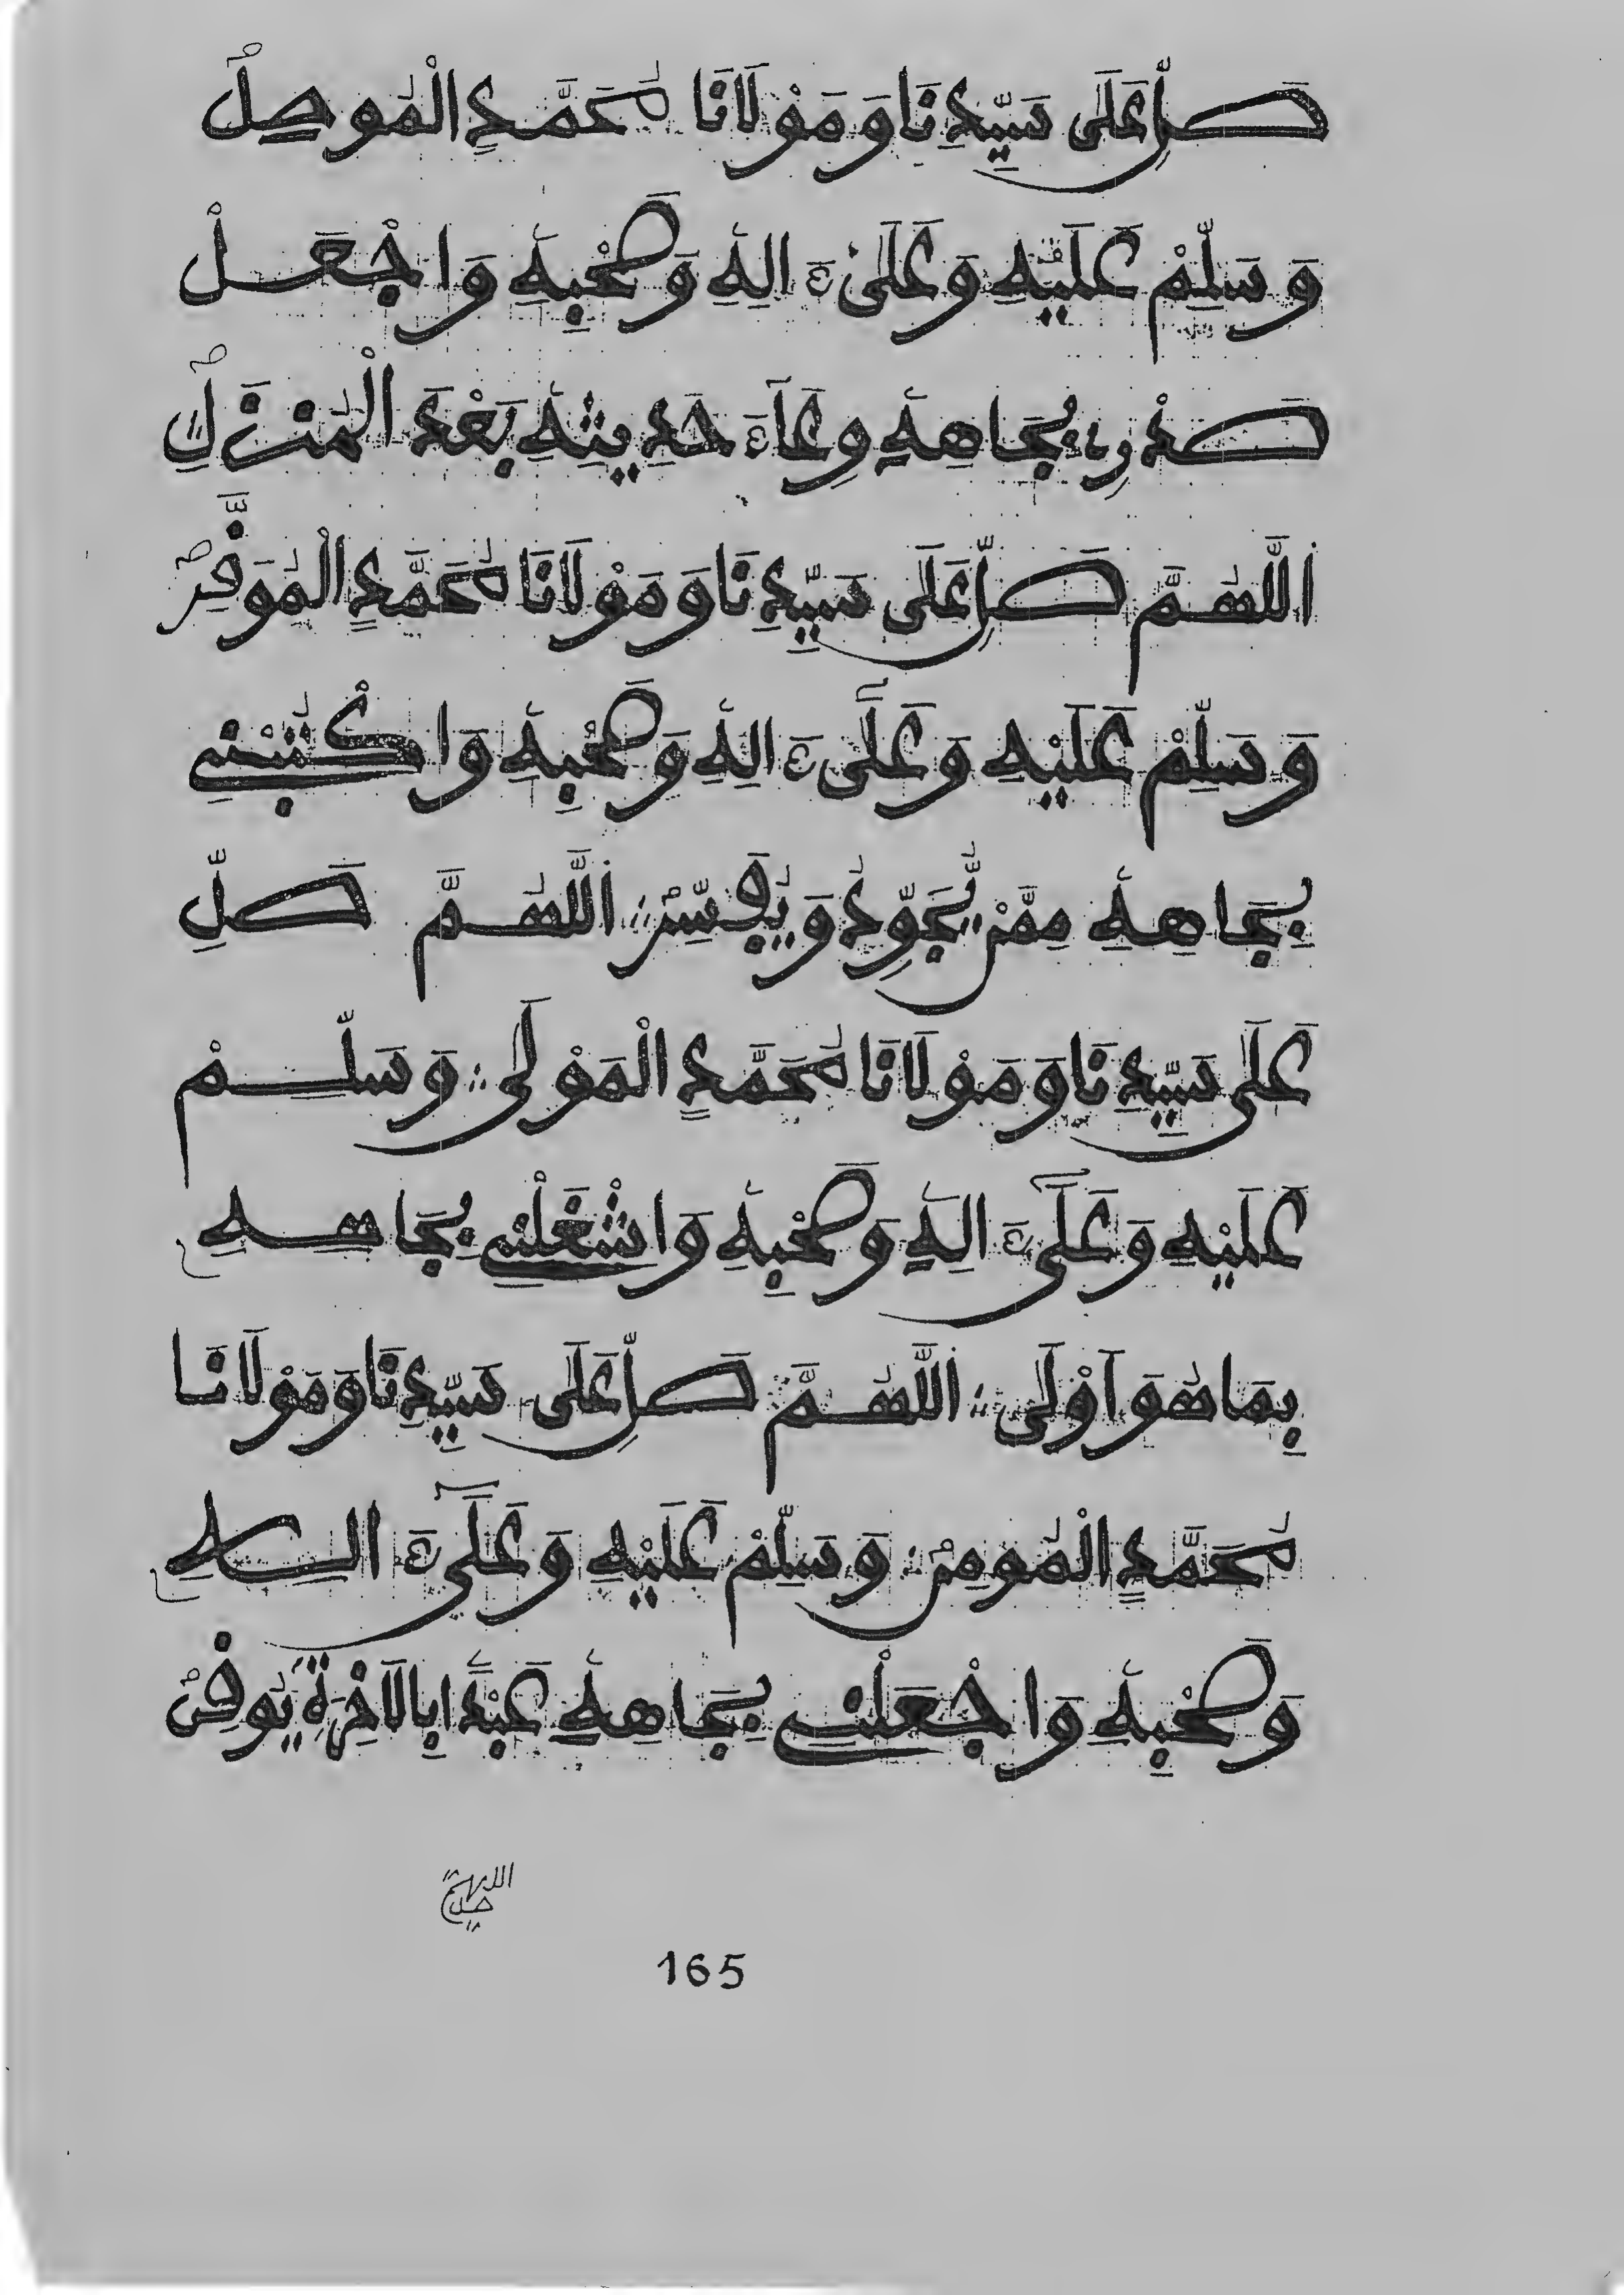 صَلِّ عَلَى سَيِّدِنَا وَمَوْلَانَا مُحَمَّدٍ الْمُوصِلْ
وَسَلِّمْ عَلَيْهِ وَعَلَىٰ ءَالِهِ وَصَحْبِهِ وَاجْعَلْ
صَدْرِي بِجَاهِهِ وِعَاءَ حَدِيثِهِ بَعْدَ الْمُنزَلِ
اللَّهُمَّ صَلِّ عَلَى سَيِّدِنَا وَمَوْلَانَا مُحَمَّدٍ الْمُوَقِّرْ
وَسَلِّمْ عَلَيْهِ وَعَلَىٰ ءَالِهِ وَصَحْبِهِ وَاكْتُبْنِي
بِجَاهِهِ مِمَّنْ يُّجَوِّدُ وَيُفَسِّرْ اللَّهُمَّ صَلِّ
عَلَى سَيِّدِنَا وَمَوْلَانَا مُحَمَّدٍ الْمَوْلَى وَسَلِّمْ
عَلَيْهِ وَعَلَىٰ ءَالِهِ وَصَحْبِهِ وَاشْغَلْنِي بِجَاهِهِ
بِمَا هُوَ اَوْلَى اللَّهُمَّ صَلِّ عَلَى سَيِّدِنَا وَمَوْلَانَا
مُحَمَّدٍ الْمُومِنْ وَسَلِّمْ عَلَيْهِ وَعَلَىٰ ءَالِهِ
وَصَحْبِهِ وَاجْعَلْنِي بِجَاهِهِ عَبْدًا بِالَاخِرَةِ يُوقِنْ
اللهم
صل
165